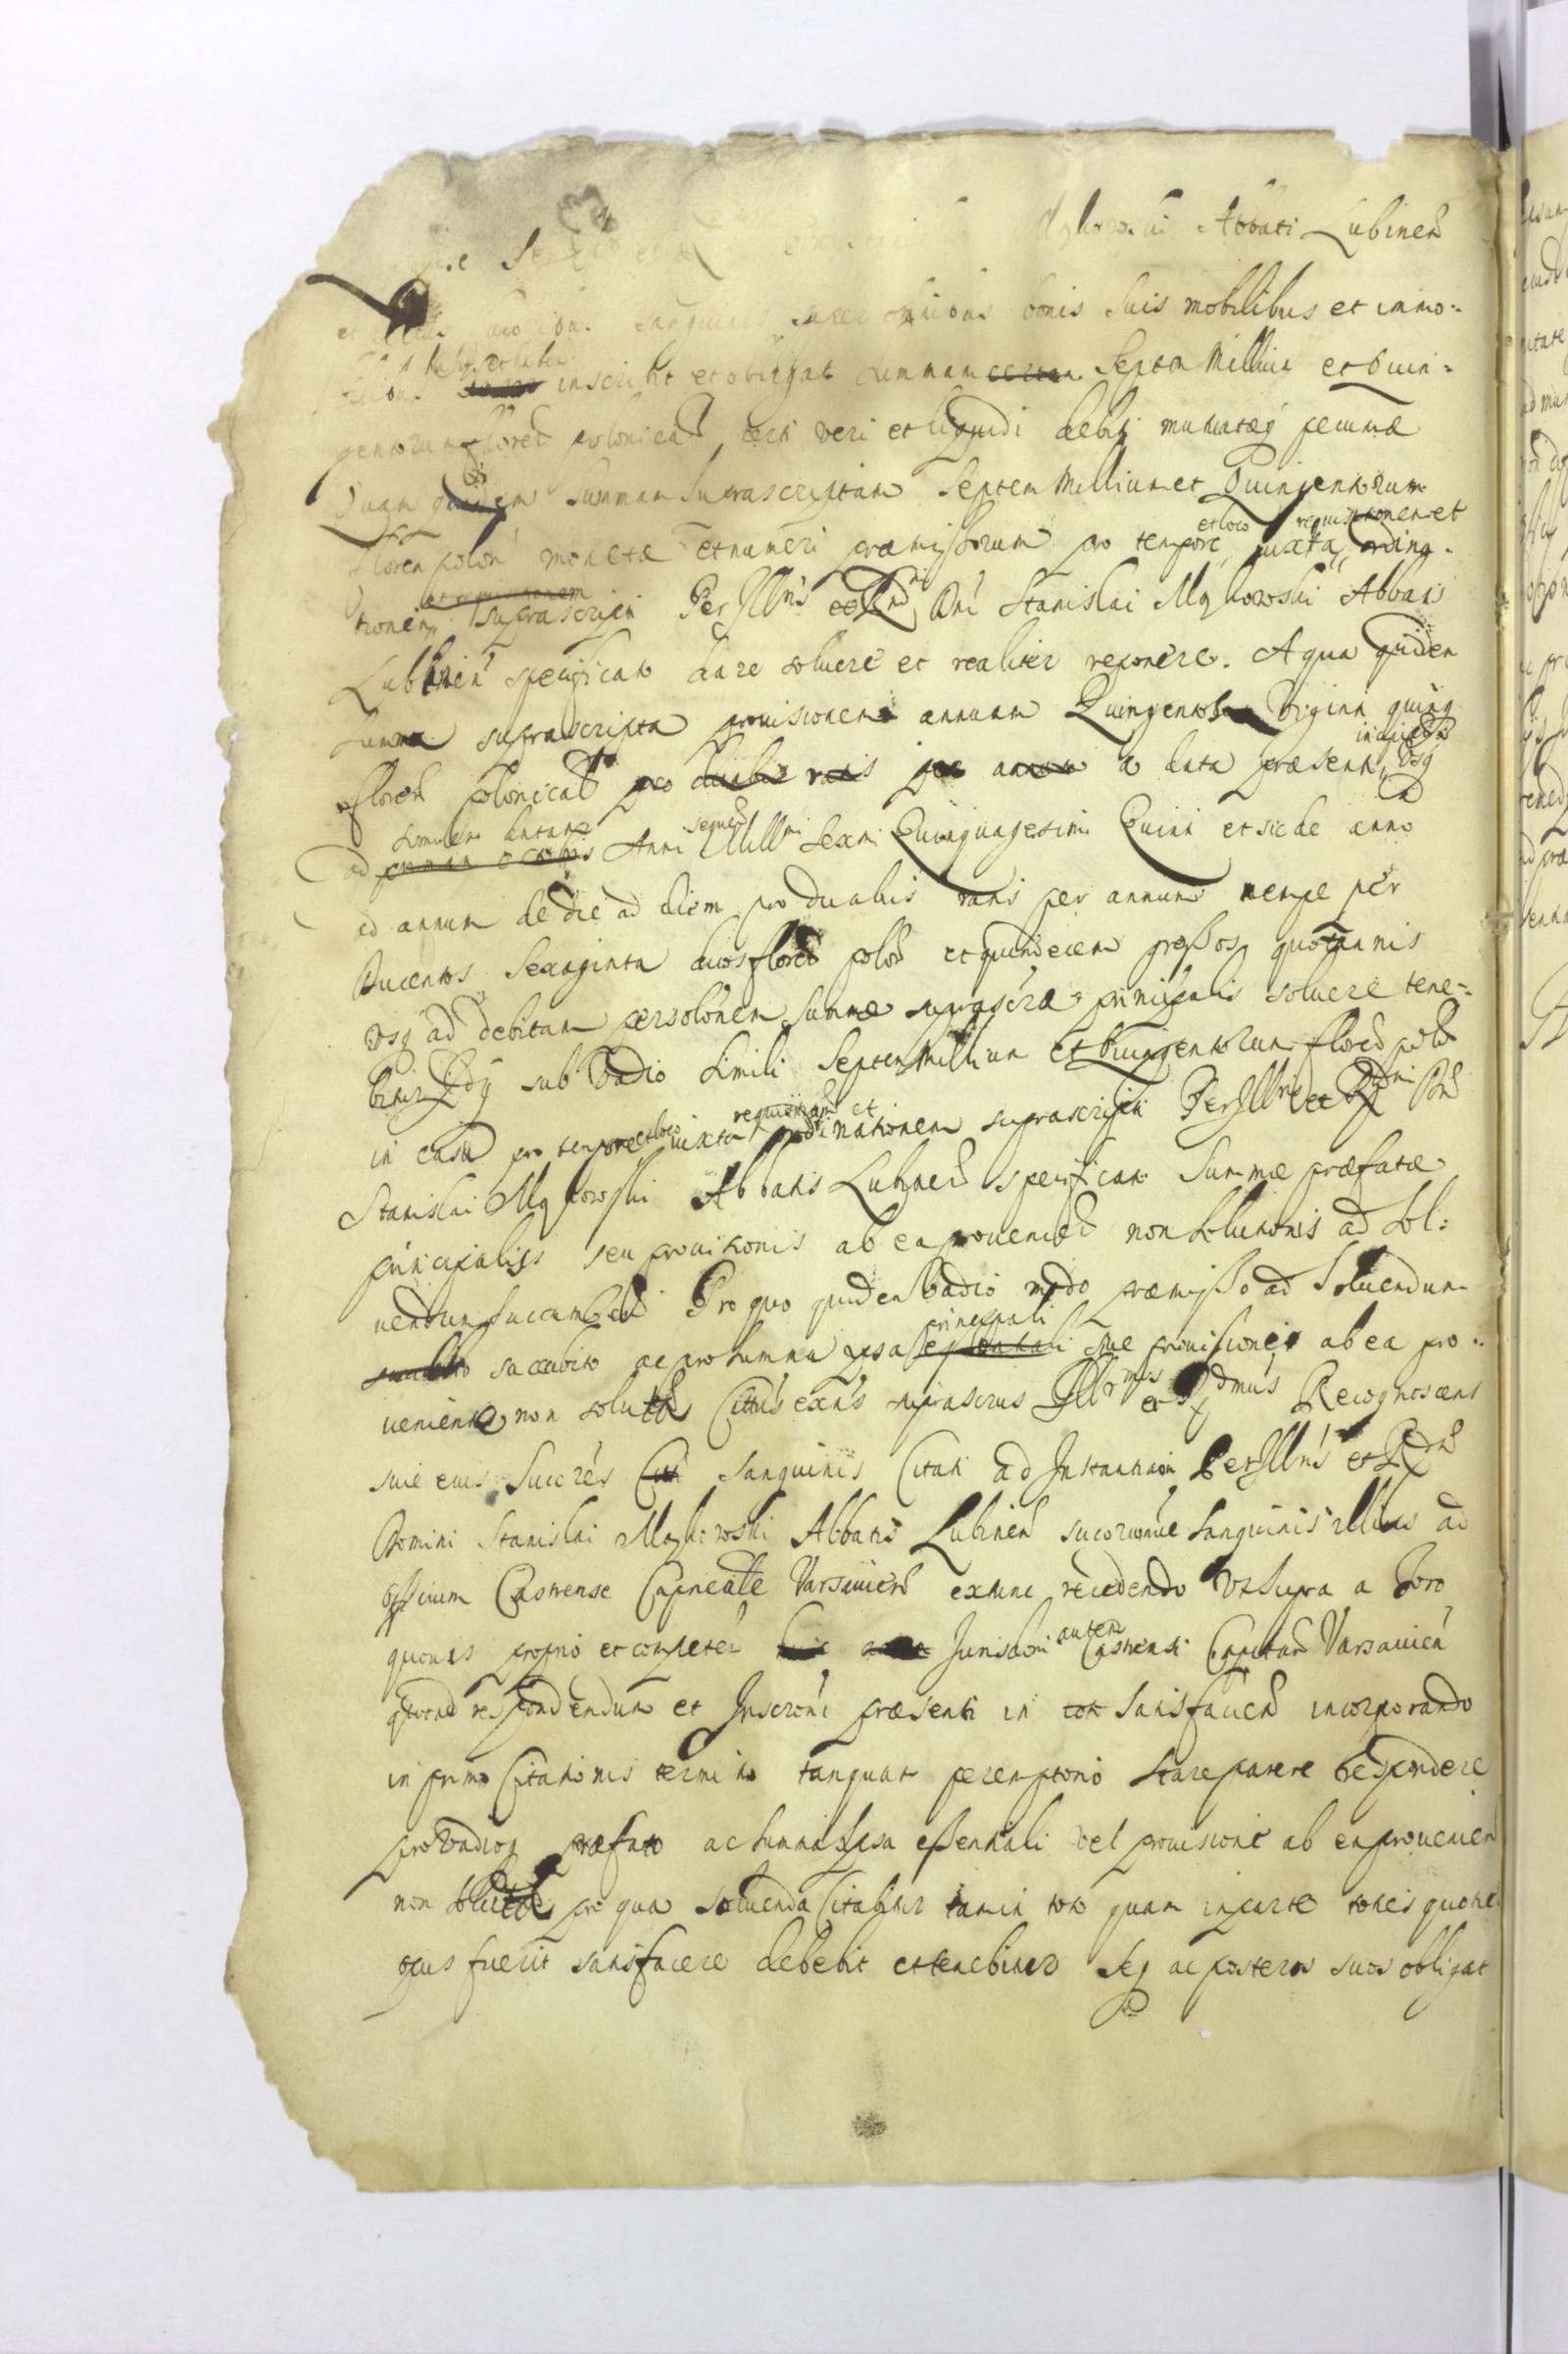 Abbati Lubinen
et sanguinis super omnibus bonis suis mobilibus et immo:
inscribit et obligat summam certam Septem Millium et Quin:
gentorum floren polonical certi veri et liquidi debiti mutuatæq pecuniæ
Quam quidem summam suprascriptam Septem Millium et Quingentorum
floren polon monetæ et numeri præmissorum pro tempore et loco iuxta requisitionem et ordina:
tionem suprascripti Per Illris et Rndi Dni Stanislai Mąkowski Abbatis
Lubinen specificato dare soluere et realiter reponere. A qua quidem
summa suprascripta prouisionem annuam Quingentos Viginti quinq
floren polonical pro duabus ratis per annum a data præsenti inscriptionis usq
ad primam octobris similem datam Anni sequen Millmi Sexmi Quinquagesimi Quinti et sic de anno
ad annum de die ad diem pro duabus ratis per annum nempe per
Ducentos Sexaginta duos floren polon et quindecem grossos quotannis
usq ad debitam persolonem summæ suprascræ principalis soluere tene:
bitur Idq sub Vadio simili Septem Millium et Quingentorum floren polon
in casu pro tempore et loco iuxta requisitionem et ordinationem suprascripti Per Illris et Rndi Dni
Stanislai Mąkowski Abbatis Lubinen specificato summæ præfatæ
principalis seu prouisionis ab ea prouenien non solutionis ad sol:
uendum succumben Pro quo quidem Vadio modo præmisso ad soluendum
succubito ac pro summa ipsa essentiali principali siue prouisione ab ea pro:
ueniente non soluta Cittus exns suprascrus Illrmus et Rdmus Recognoscens
siue eius Succres Citt sanguinis Citati ad Instantiam Per Illris et Rndi
Domini Stanislai Mąkowski Abbatis Lubinen succorumue sanguinis illius ad
officium Castrense Capneale Varsauien extunc recedendo ut supra a foro
quouis proprio et competen Jurisdioni autem Castrensi Capitan Varsauien
quoad respondendum et Inscroni præsenti in toto satisfacien incorporando
in primo Citationis termino tanquam peremptorio stare parere respondere
pro Vadioq præfato ac summa ipsa essentiali vel prouisione ab ea prouenien
non soluta pro qua soluenda Citabitur tam in toto quam in parte toties quoties
opus fuerit satisfacere debebit et tenebitur Seq ac posteros suos obligat